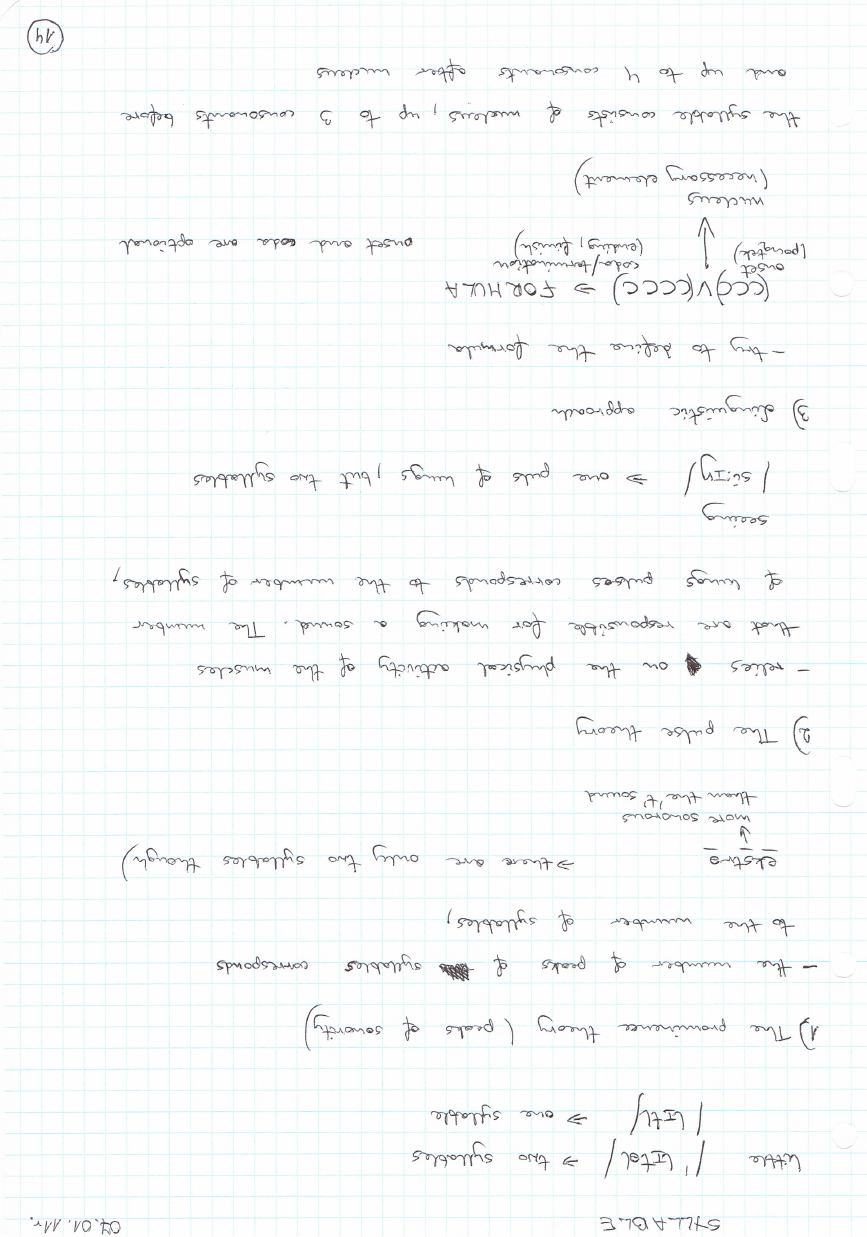 SYLLABLE 07.01.11r.
little /'lɪtəl/ ⇒ two syllables
/lɪtl/ ⇒ one syllable
1) The prominence theory (peaks of sonority)
- the number of peaks of syllables corresponds
to the number of syllables,
ekstra ⇒ there are only two syllables though)
↓
more sonorous
than the 't' sound
2) The pulse theory
- relies on the physical activity of the muscles
that are responsible for making a sound. The number
of lungs pulses corresponds to the number of syllables,
seeing
/si:ɪŋ/ ⇒ one puls of lungs, but two syllables
3) Linguistic approach
- try to define the formula
(CCC)V(CCCC) ⇒ FORMULA
onset (początek)
coda/termination (ending, finish)
onset and coda are optional
nucleus
(necessary element)
the syllable consists of nucleus, up to 3 consonants before
and up to 4 consonants after nucleus
14